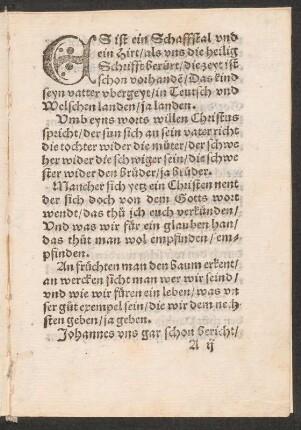 ES ist ein Schaffstal vnd
ein Hirt/als vns die heilig
Schrifft berürt/die zeyt ist
schon vorhandē/Das kind
seyn vatter vbergeyt/in Teutsch vnd
Welschen landen/ja landen.
Vmb eyns worts willen Christus
spricht/der sun sich an sein vater richt
die tochter wider die můter/der schwe
her wider die schwiger sein/die schwe
ster wider den brůder/ja brůder.
Mancher sich yetz ein Christen nent
der sich doch von dem Gotts wort
wendt/das thů jch euch verkünden/
Vnd was wir für ein glauben han/
das thůt man wol empfinden/em-
pfinden.
An früchten man den baum erkent/
an wercken sicht man wer wir seind/
vnd wie wir fůren ein leben/was vn
ser gůt exempel sein/die wir dem nech
sten geben/ja geben.
Johannes vns gar schon bericht/
A ij